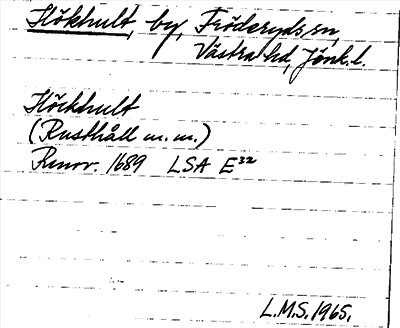 Hökhult, by, Fröderyds sn,
Västra hd, Jönk. l.
Höckhult
(Rusthåll m. m.)
Renov. 1689 LSA E³²
L.M.S. 1965.